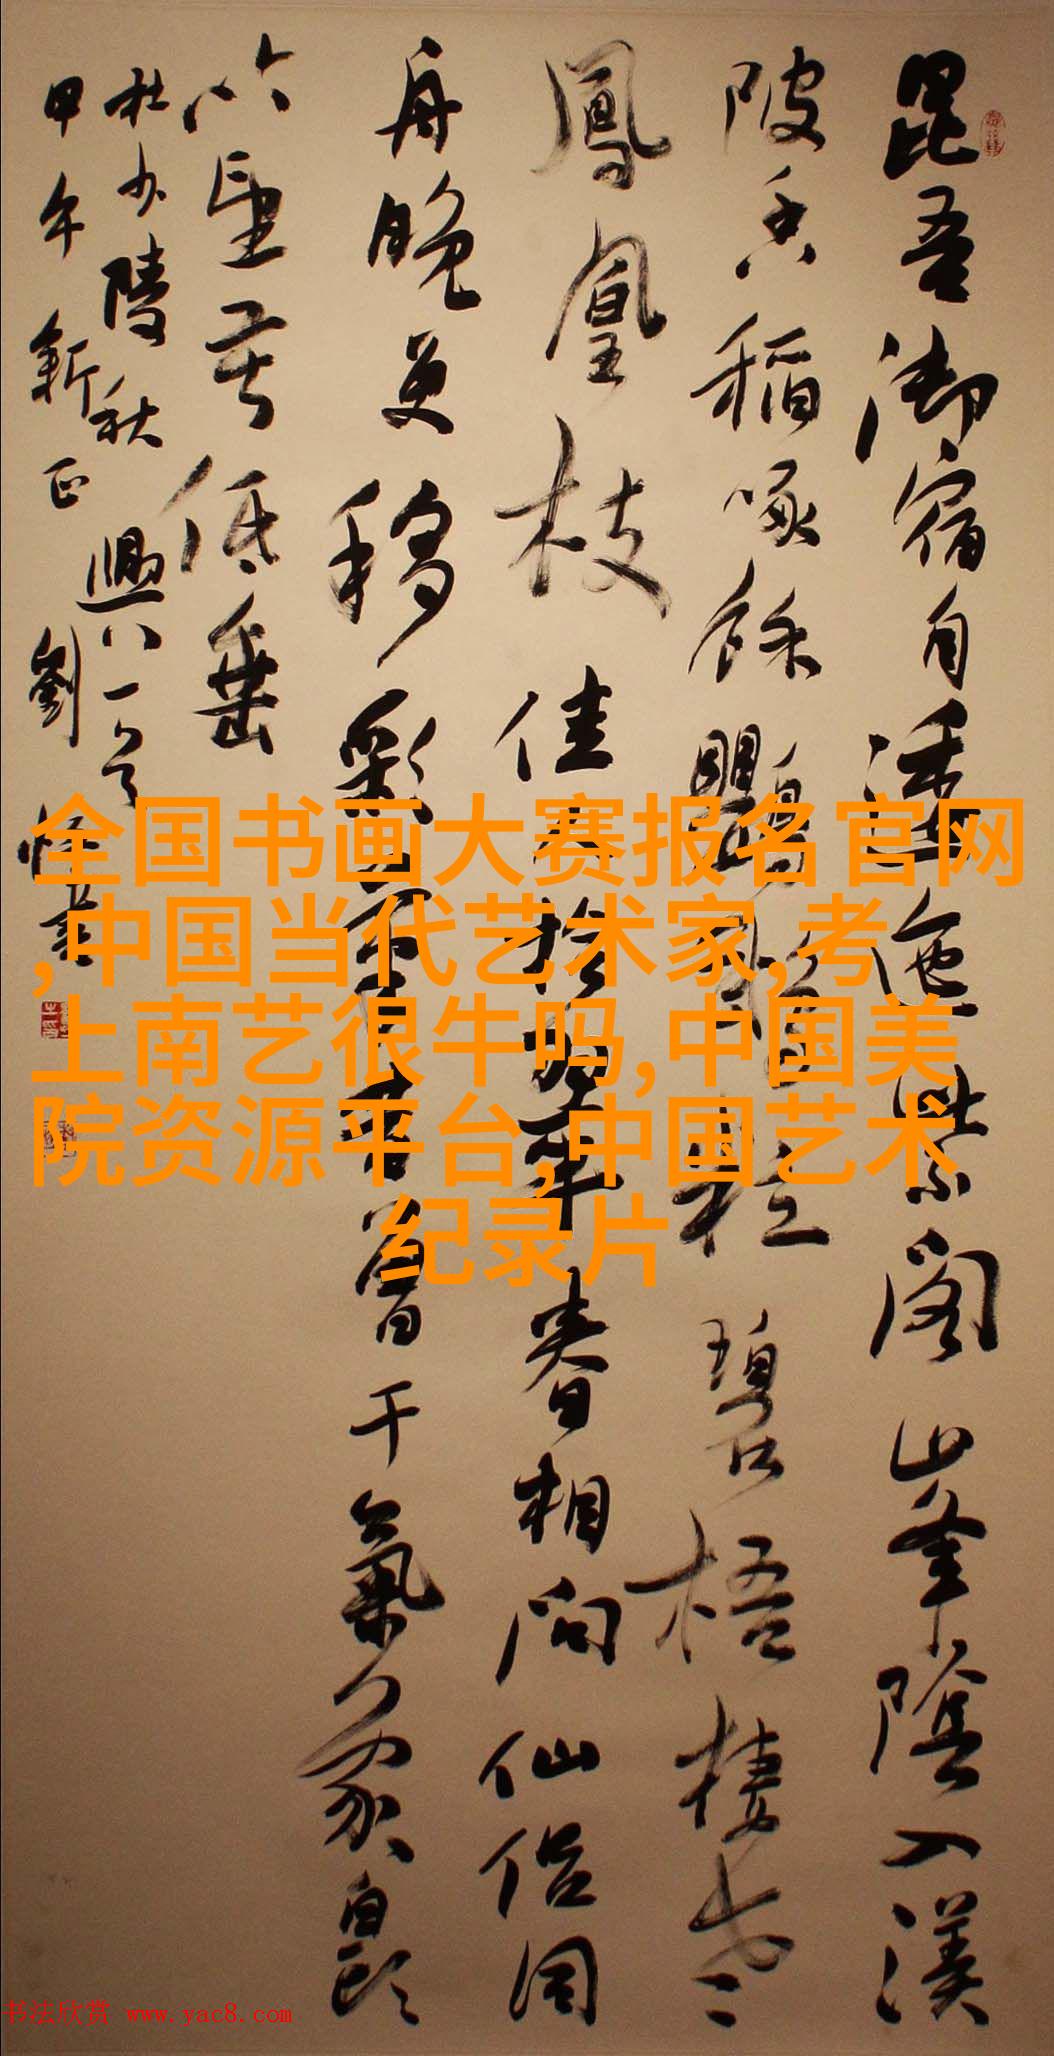 昆吾御宿自逶迤紫閣峯陰入渼
陂香稻啄餘鸚鵡粒碧梧棲老
鳳凰枝佳人拾翠春相問仙侶同
舟晚更移彩筆昔曾干氣象白頭
吟望苦低垂
杜少陵秋興八一首
甲午新正劉恒書
全国书画大赛报名官网
,中国当代艺术家,考
上南艺很牛吗,中国美
院资源平台,中国艺术
纪录片
书法欣赏 www.yac8.com